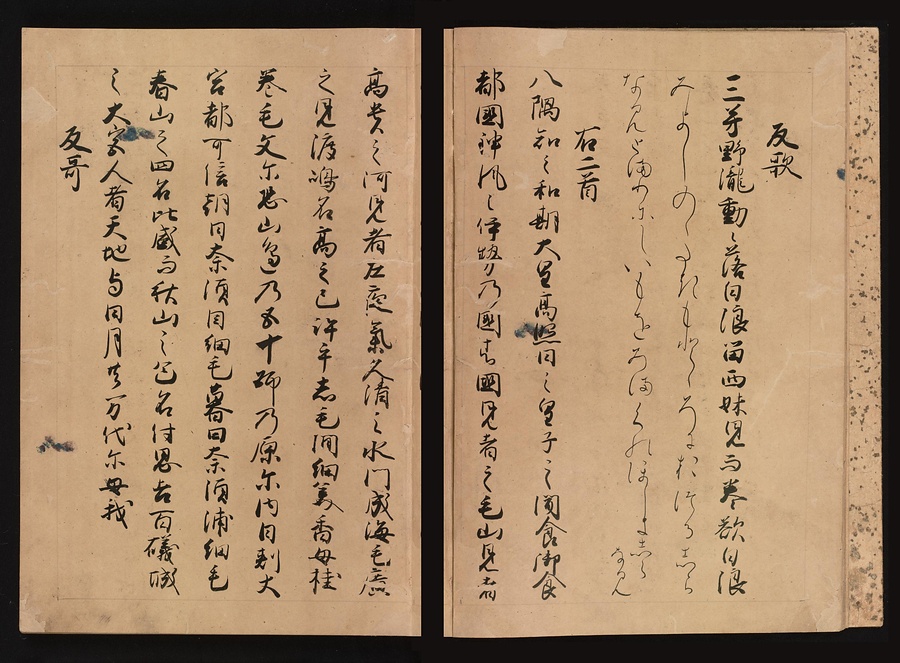 反歌
三芳野瀧動〻落白浪留西妹見西巻欲白浪
みよしのゝたきもとゝろにおつるしら
なみとまりにしいもをみまくのほしきしらなみ
右二首
八隅知之和期大皇高照日之皇子之聞食御食
都國神風之伊勢乃國者國見者之毛山見者
高貴之河見者左夜氣久清之水門成海毛廣
之見渡嶋名高之己許乎志毛間細美香母挂
巻毛文尓恐山邊乃五十師乃原尓内日刺大
宮都可倍朝日奈須目細毛暮日奈須浦細毛
春山之四名比盛而秋山之色名付思吉百礒城
之大宮人者天地与日月共万代尓母我
反哥